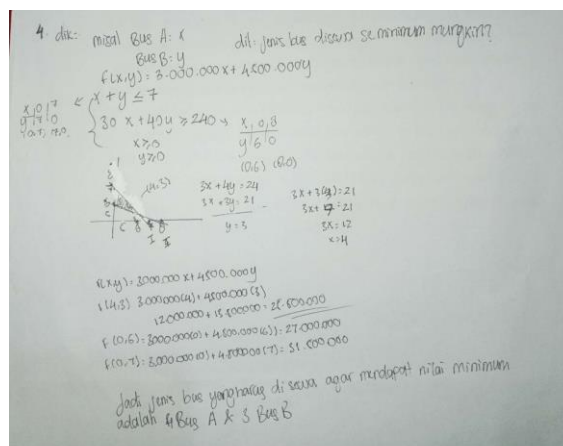 4. dik: misal Bus A: x dit: jenis bus disewa seminimum mungkin?
Bus B: y
f(x,y) = 3.000.000x + 4.500.000y
x + y ≤ 7
x | 0 | 7
y | 7 | 0
30x + 40y ≥ 240
x | 0 | 8
y | 6 | 0
x ≥ 0
y ≥ 0
(0,6) (8,0)
(4,3)
3x + 4y = 24
3x + 3y = 21
y = 3
3x + 3(3) = 21
3x + 9 = 21
3x = 12
x = 4
I II
f(x,y) = 3000.000 x + 4500.000y
f(4,3) 3.000.000(4) + 4500.000(3)
12.000.000 + 13.500.000 = 25.500.000
f(0,6) = 3000000(0) + 4.500.000(6) = 27.000.000
f(0,7) = 3.000.000(0) + 4.500.000(7) = 31.500.000
Jadi jenis bus yang harus di sewa agar mendapat nilai minimum
adalah 4 Bus A & 3 Bus B